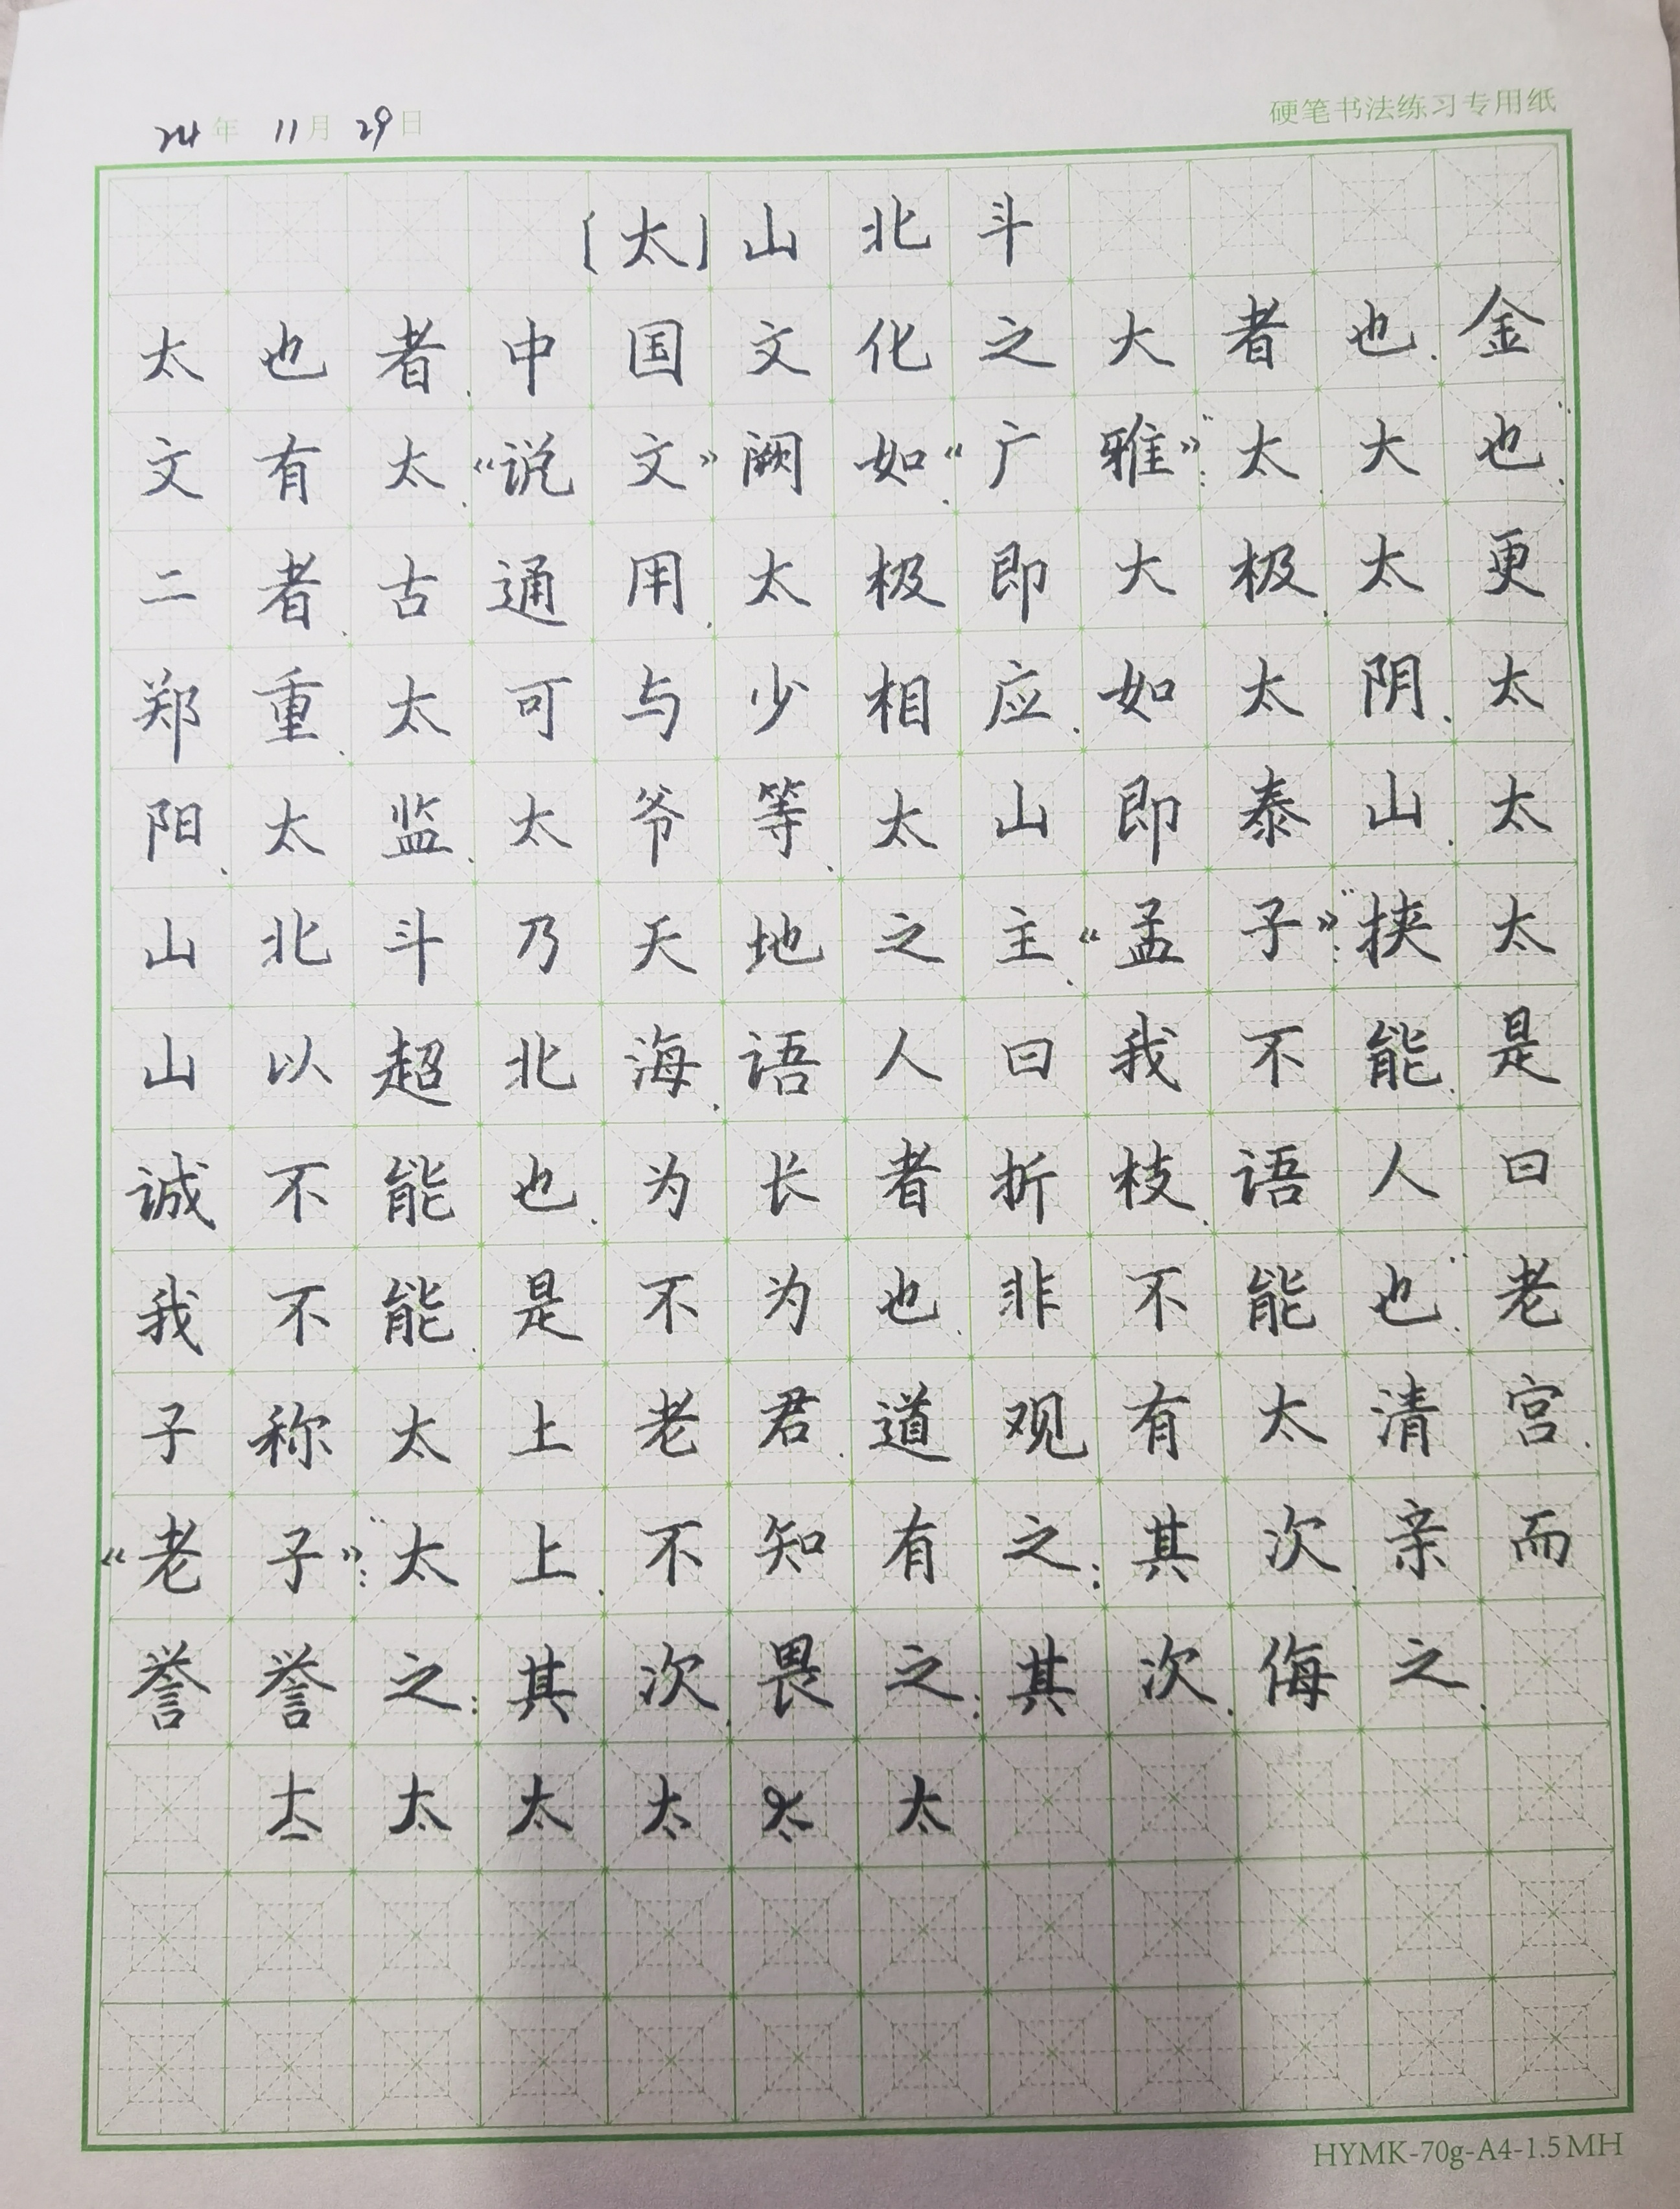 24年 11月 29日
硬笔书法练习专用纸
[太]山北斗
太也者.中国文化之大者也.金
文有太.《说文》阙如.《广雅》:“太.大也.”
二者.古通用.太极即大极.太更
郑重.太可与少相应.如太阴.太
阳、太监、太爷等、太山即泰山.太
山北斗乃天地之主.《孟子》:“挟太
山以超北海.语人曰我不能.是
诚不能也.为长者折枝.语人曰
我不能.是不为也.非不能也.”老
子称太上老君.道观有太清宫.
《老子》:“太上.不知有之;其次.亲而
誉誉之;其次.畏之;其次.侮之.
太太太太太太
HYMK-70g-A4-1.5MH